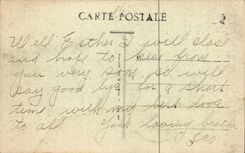 CARTE POSTALE
Well Esther I will close
and hope to hear from
you very soon so will
say good bye for a short
time with my best love
to all Your loving